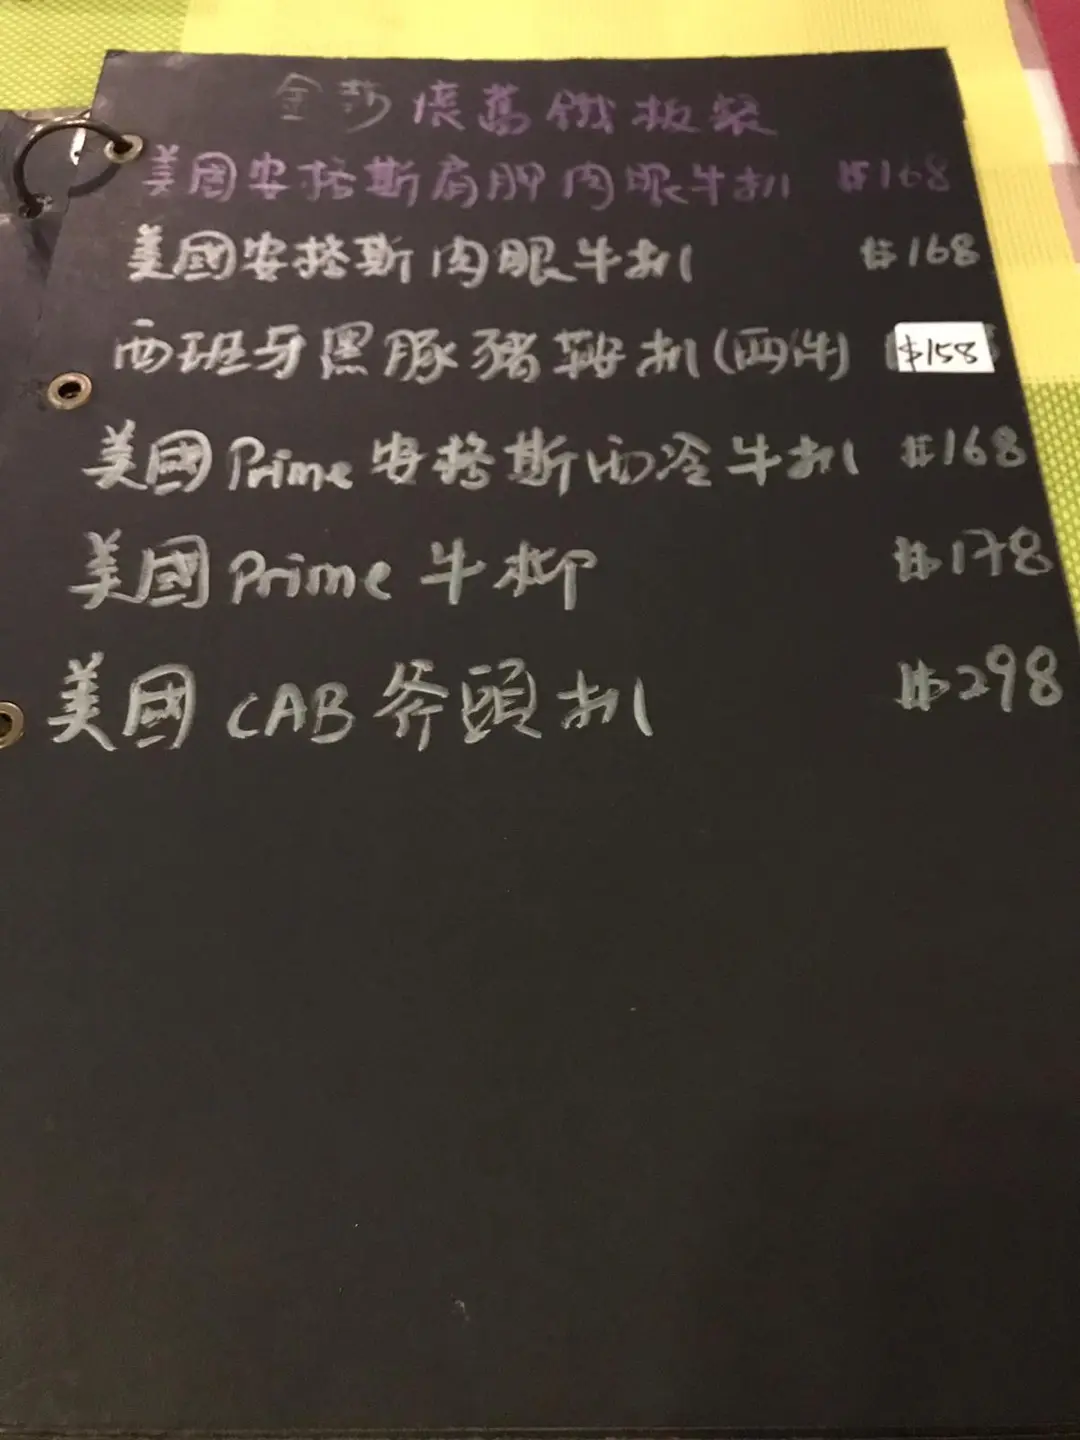 金莎 廣島鐵板餐
美國安格斯肩胛肉眼牛扒 $168
美國安格斯肉眼牛扒 $168
西班牙黑豚豬鞍扒(兩件) $158
美國Prime安格斯西冷牛扒 $168
美國Prime牛柳 $178
美國CAB斧頭扒 $298